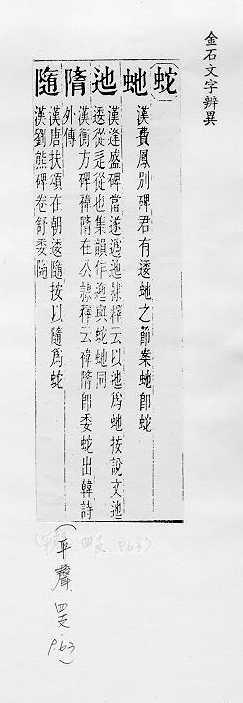 金石文字辨異
蛇
虵
漢費鳳別碑君有逶虵之節案虵即蛇
迆
漢逢盛碑當遂逶迆隸釋云以迆爲虵按說文迆
逶從辵從也集韻作迆與蛇虵同
隋
漢衡方碑褘隋在公隸釋云褘隋即委蛇出韓詩
外傳
隨
漢唐扶頌在朝逶隨按以隨爲蛇
漢劉熊碑卷舒委隨
(平聲 四支 p.63)
(平聲 四支 p.63)